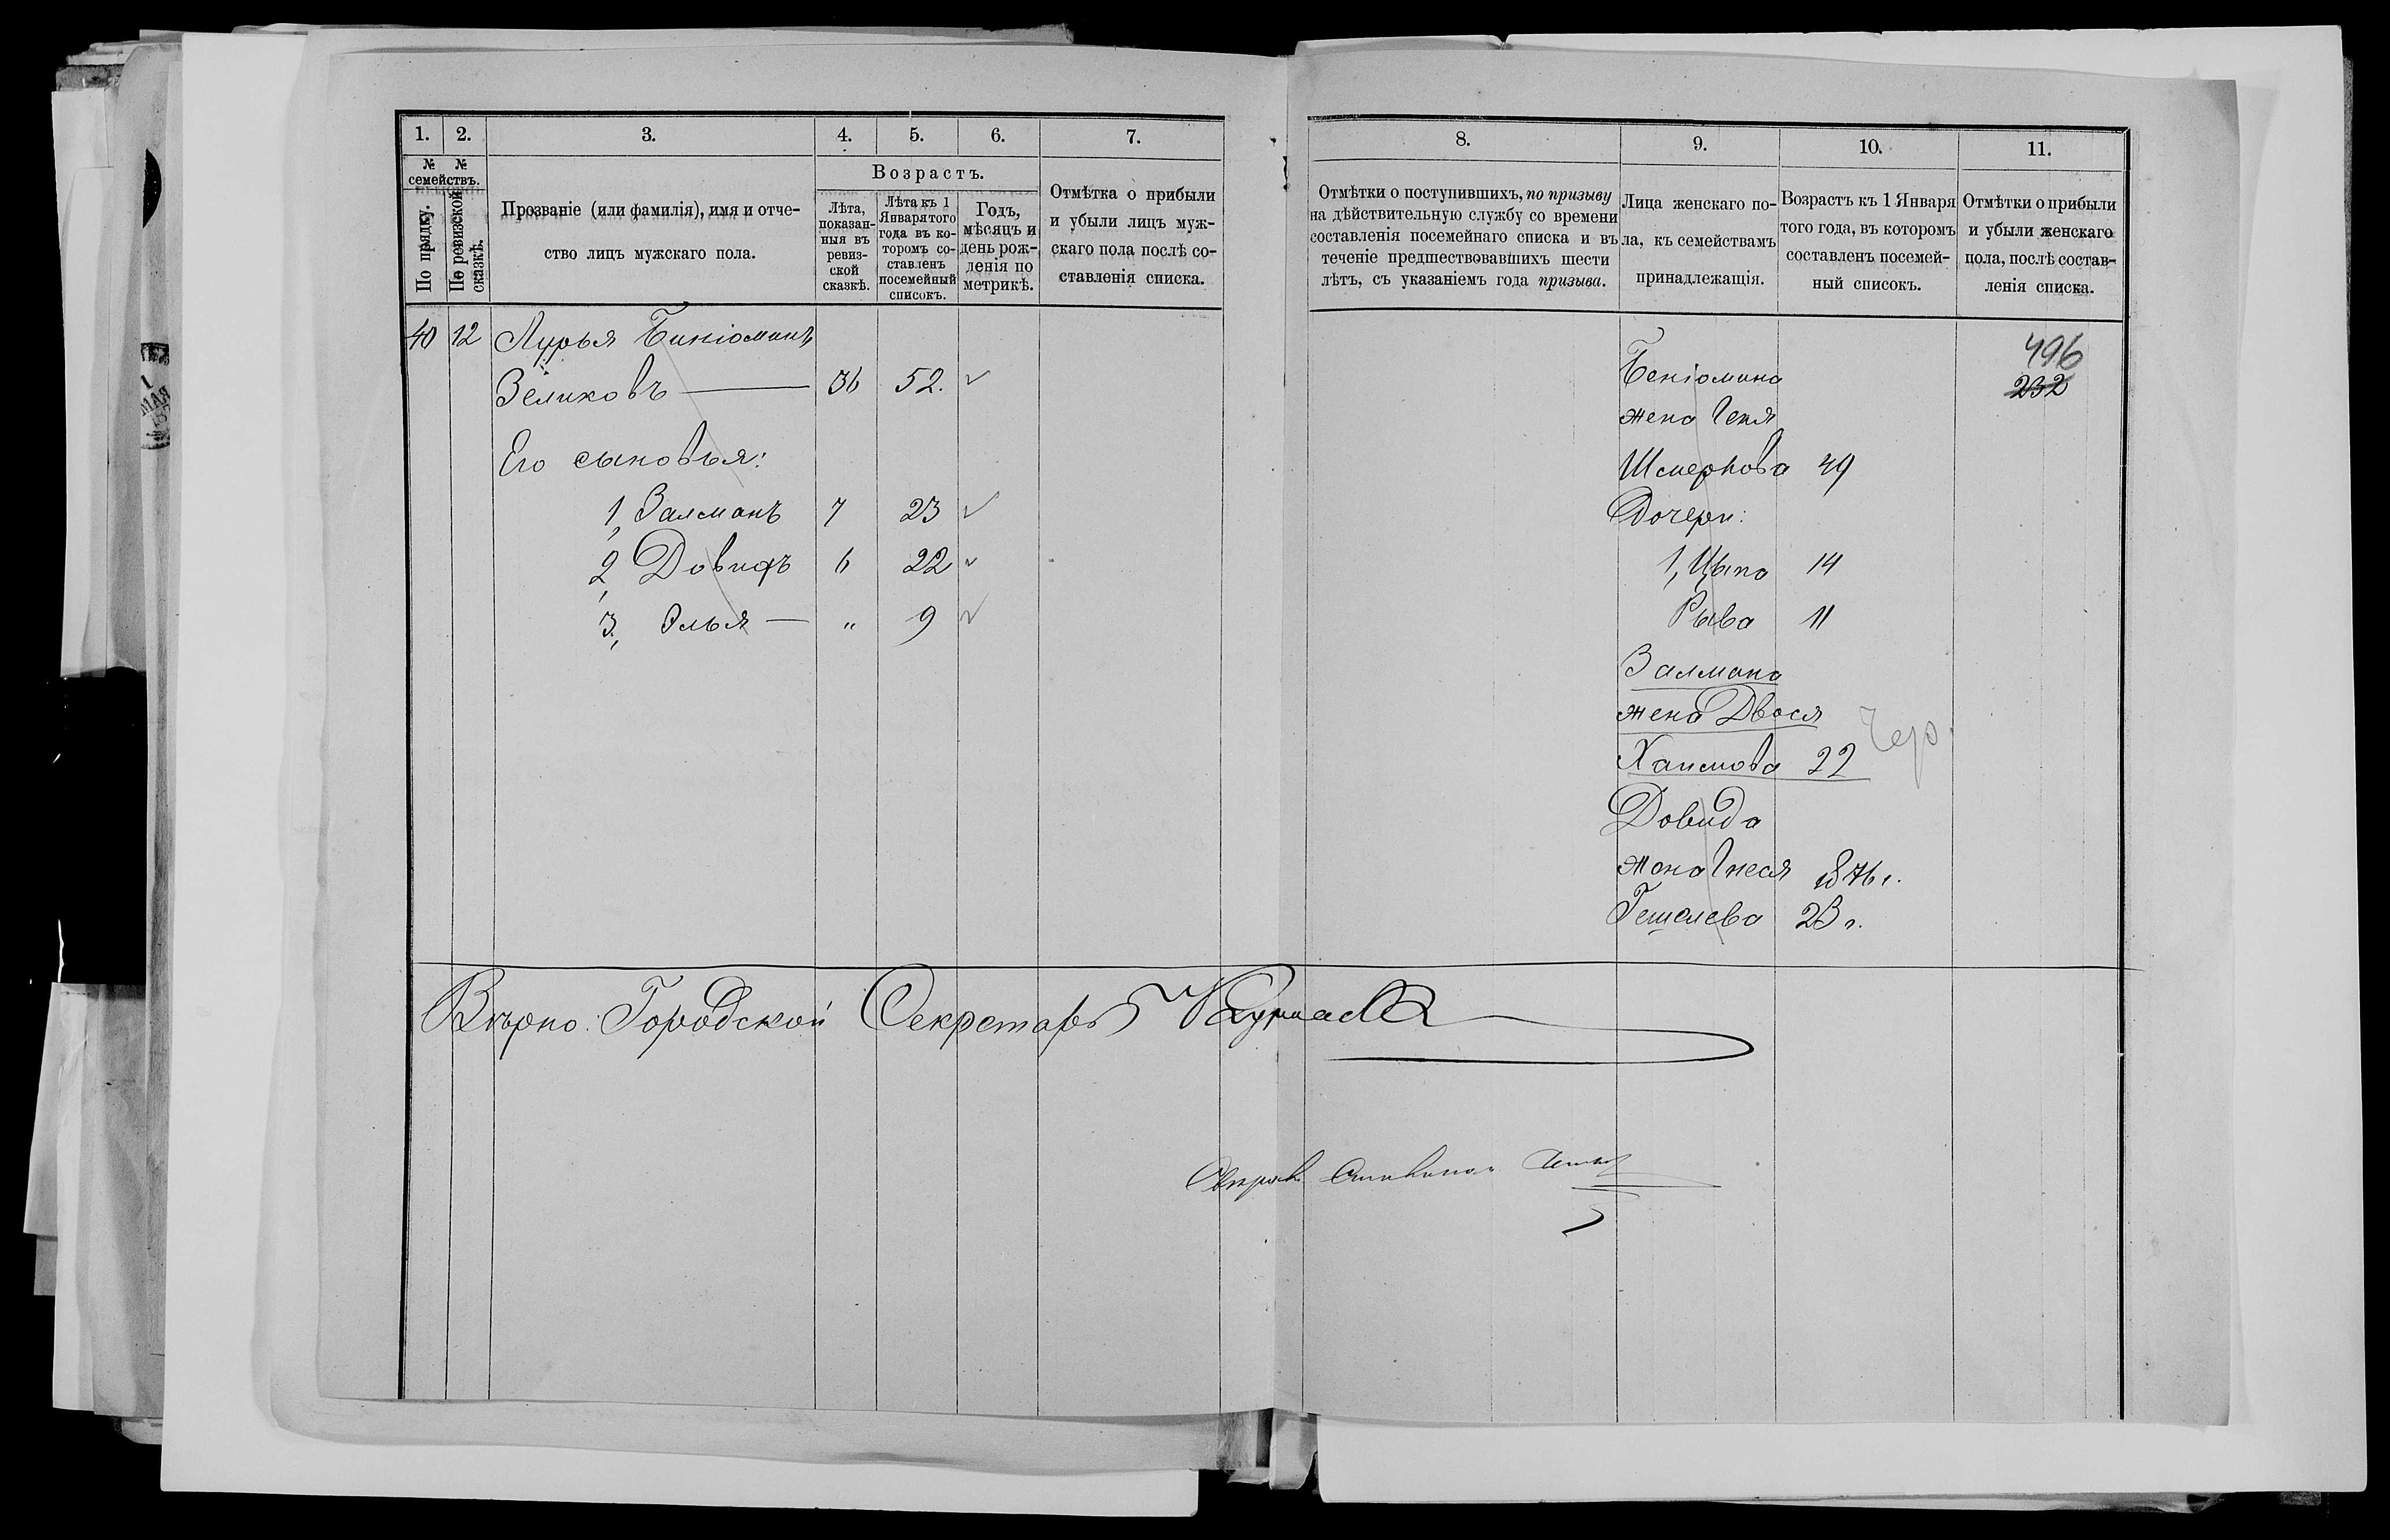 1. 2. 3. 4. 5. 6. 7.
№ № семействъ.
По прядку.
По ревизской сказкѣ.
Прозваніе (или фамилія), имя и отче-
ство лицъ мужскаго пола.
Возрастъ.
Лѣта,
показан-
ныя въ
ревиз-
ской
сказкѣ.
Лѣта къ 1
Января того
года въ ко-
торомъ со-
ставленъ
посемейный
списокъ.
Годъ,
мѣсяцъ и
день рож-
денія по
метрикѣ.
Отмѣтка о прибыли
и убыли лицъ муж-
скаго пола послѣ со-
ставленія списка.
40 12 Лурья Биніоминъ
Зеликовъ — 36 52.
Его сыновья:
1, Залманъ 7 23
2, Довидъ 6 22
3, Элья — „ 9
8. 9. 10. 11.
Отмѣтки о поступившихъ, по призыву
на дѣйствительную службу со времени
составленія посемейнаго списка и въ
теченіе предшествовавшихъ шести
лѣтъ, съ указаніемъ года призыва.
Лица женскаго по-
ла, къ семействамъ
принадлежащія.
Возрастъ къ 1 Января
того года, въ которомъ
составленъ посемей-
ный списокъ.
Отмѣтки о прибыли
и убыли женскаго
пола, послѣ состав-
ленія списка.
496
232
Беніомина
жена Геня
Шмеркова 49
Дочери:
1, Цыпа 14
Рыва 11
Залмана
жена Двося
Хаимова 22
Довида
жена Гнеся 1876 г.
Гешелева 23 г.
Вѣрно: Городской Секретарь